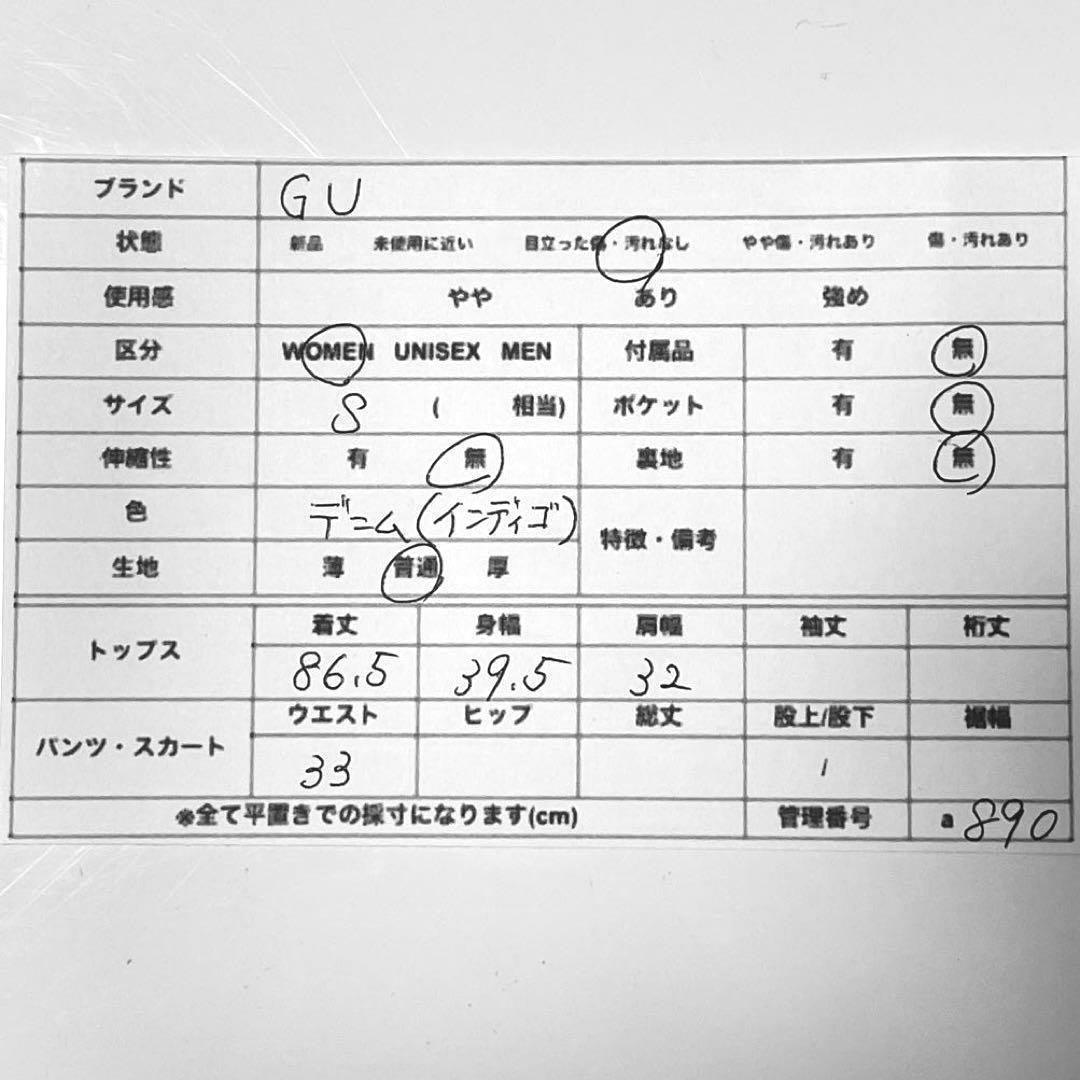 ブランド GU
状態 新品 未使用に近い 目立った傷・汚れなし やや傷・汚れあり 傷・汚れあり
使用感 やや あり 強め
区分 WOMEN UNISEX MEN 付属品 有 無
サイズ S ( 相当) ポケット 有 無
伸縮性 有 無 裏地 有 無
色 デニム(インディゴ)
特徴・備考
生地 薄 普通 厚
着丈 身幅 肩幅 袖丈 裄丈
トップス
86.5 39.5 32
ウエスト ヒップ 総丈 股上/股下 裾幅
パンツ・スカート
33 /
※全て平置きでの採寸になります(cm) 管理番号 a 890